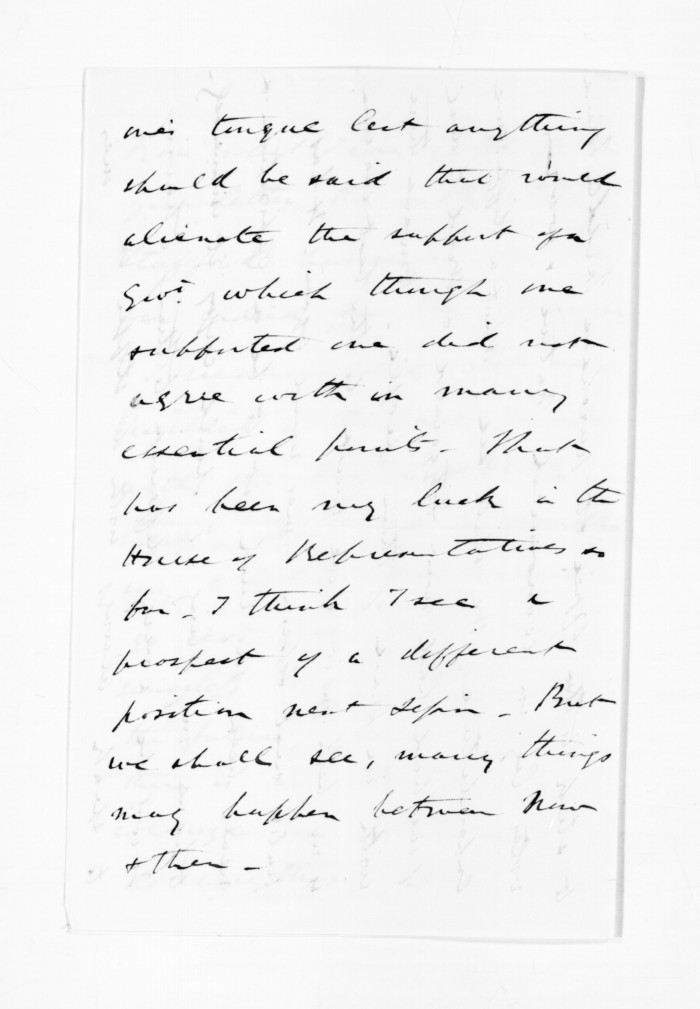 one's tongue lest anything
should be said that would
alienate the support of a
Govt. which though one
supported one did not
agree with in many
essential points - That
has been my luck in the
House of Representatives so
far - I think I see a
prospect of a different
position next Sessn - But
we shall see, many things
may happen between now
& then -